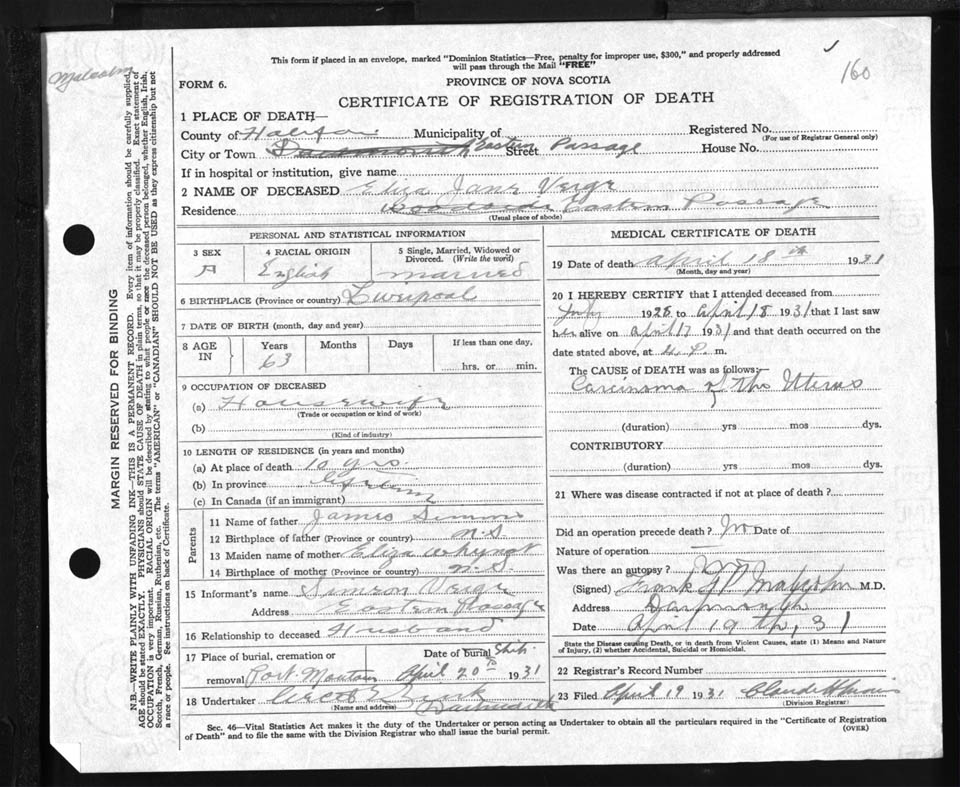 This form if placed in an envelope, marked "Dominion Statistics—Free, penalty for improper use, $300," and properly addressed
will pass through the Mail "FREE"
160
Malcolm
FORM 6.
PROVINCE OF NOVA SCOTIA
CERTIFICATE OF REGISTRATION OF DEATH
1 PLACE OF DEATH—
County of Halifax Municipality of Registered No.
(For use of Registrar General only)
City or Town Dartmouth Eastern Street Passage House No.
If in hospital or institution, give name
2 NAME OF DECEASED Eliza Jane Verge
Residence Woodside Eastern Passage
(Usual place of abode)
PERSONAL AND STATISTICAL INFORMATION
3 SEX 4 RACIAL ORIGIN 5 Single, Married, Widowed or
Divorced. (Write the word)
F English married
6 BIRTHPLACE (Province or country) Liverpool
7 DATE OF BIRTH (month, day and year)
8 AGE IN Years Months Days If less than one day,
63 hrs. or min.
9 OCCUPATION OF DECEASED
(a) Housewife
(Trade or occupation or kind of work)
(b)
(Kind of industry)
10 LENGTH OF RESIDENCE (in years and months)
(a) At place of death 10 yrs.
(b) In province lifetime
(c) In Canada (if an immigrant)
Parents
11 Name of father James
12 Birthplace of father (Province or country) N.S.
13 Maiden name of mother Eliza Whynot
14 Birthplace of mother (Province or country) N.S.
15 Informant's name Simeon Verge
Address Eastern Passage
16 Relationship to deceased Husband
17 Place of burial, cremation or Date of burial
removal Port Mouton April 20th 1931
18 Undertaker
(Name and address) Dartmouth
MEDICAL CERTIFICATE OF DEATH
19 Date of death April 18th 1931
(Month, day and year)
20 I HEREBY CERTIFY that I attended deceased from
July 1928 to April 18 1931 that I last saw
her alive on April 17 1931 and that death occurred on the
date stated above, at 4 P. m.
The CAUSE of DEATH was as follows:
Carcinoma of the Uterus
(duration) yrs mos dys.
CONTRIBUTORY
(duration) yrs mos dys.
21 Where was disease contracted if not at place of death?
Did an operation precede death? No Date of
Nature of operation —
Was there an autopsy? No
(Signed) Frank Malcolm M.D.
Address Dartmouth
Date April 19th, 31
State the Disease causing Death, or in death from Violent Causes, state (1) Means and Nature
of Injury, (2) whether Accidental, Suicidal or Homicidal.
22 Registrar's Record Number
23 Filed April 19 1931 Claude
(Division Registrar)
Sec. 46—Vital Statistics Act makes it the duty of the Undertaker or person acting as Undertaker to obtain all the particulars required in the "Certificate of Registration
of Death" and to file the same with the Division Registrar who shall issue the burial permit.
(OVER)
MARGIN RESERVED FOR BINDING
N.B.—WRITE PLAINLY WITH UNFADING INK—THIS IS A PERMANENT RECORD. Every item of information should be carefully supplied.
AGE should be stated EXACTLY. PHYSICIANS should STATE CAUSE OF DEATH in plain terms, so that it may be properly classified. Exact statement of
OCCUPATION is very important. RACIAL ORIGIN will be described by stating to what people or race the deceased person belonged, whether English, Irish,
Scotch, French, German, Russian, Ruthenian, etc. The terms "AMERICAN" or "CANADIAN" SHOULD NOT BE USED as they express citizenship but not
a race or people. See instructions on back of Certificate.